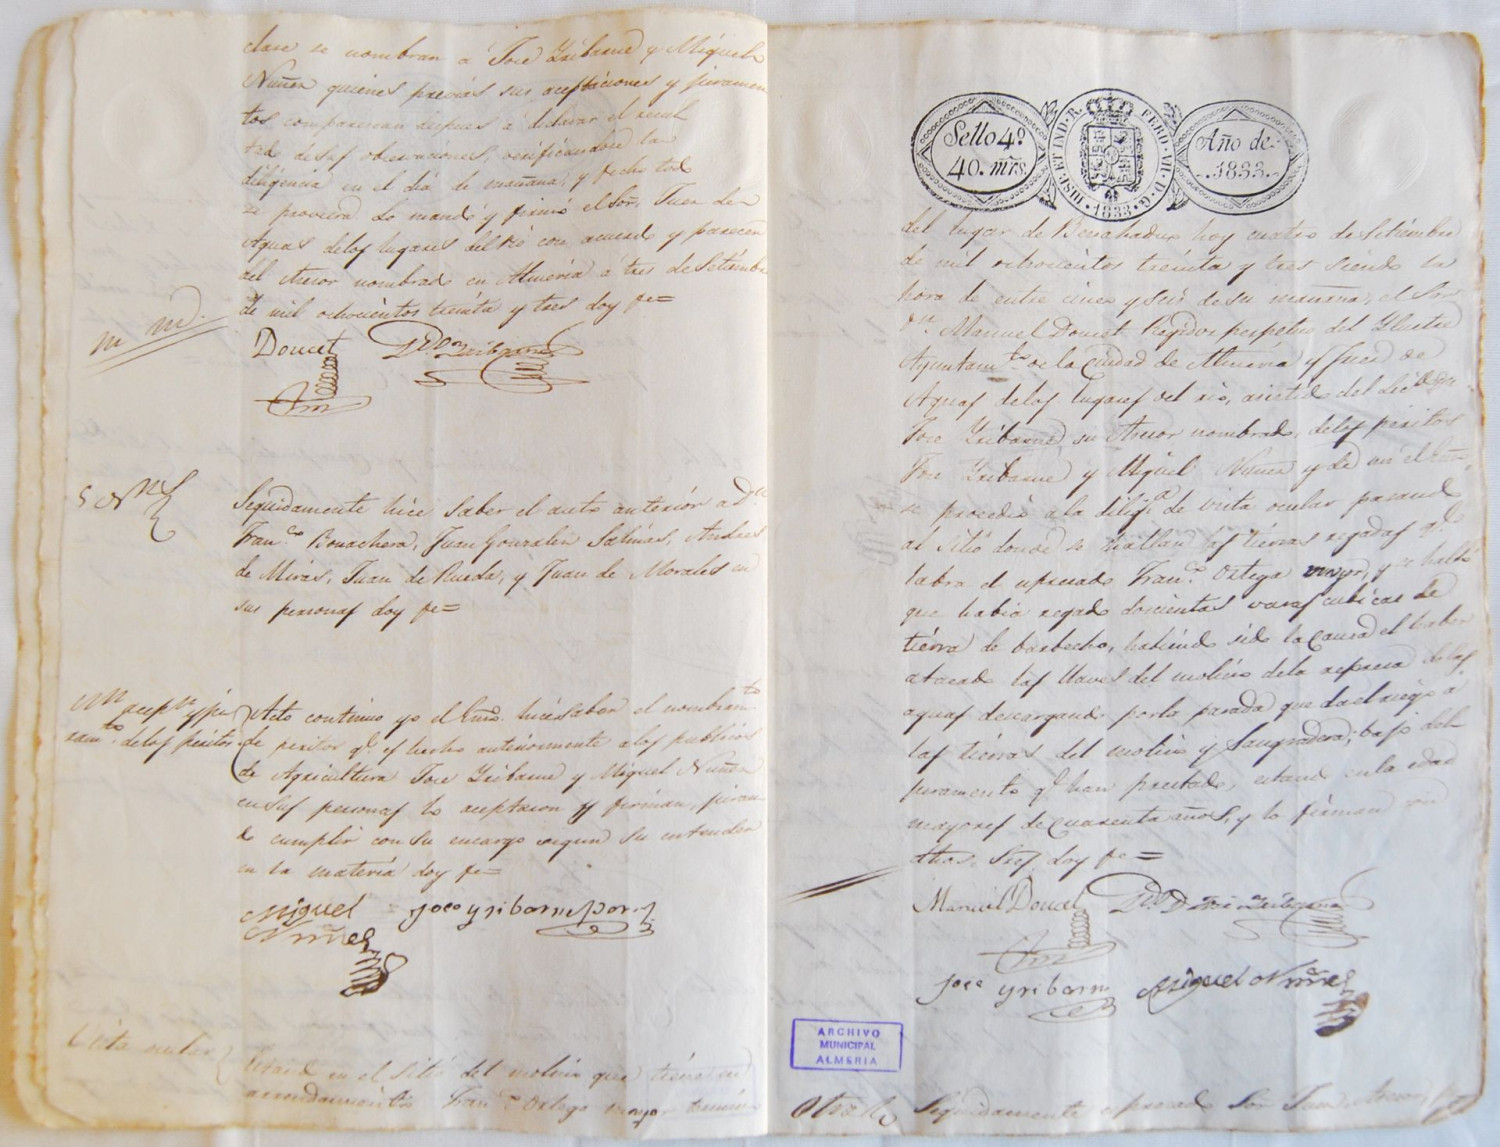 clase se nombran a Jose Yribarne y Miguel
Nuñez quienes previas sus aceptaciones y juramen
tos comparezcan despues a declarar el resul
tado de sus observaciones, verificandose la
diligencia en el dia de mañana, y fecho todo
se proveera. Lo mandó y firmó el Sor. Juez de
Aguas delos lugares del Rio con acuerdo y parecer
del Asesor nombrado en Almeria a tres de Setiembre
de mil ochocientos treinta y tres doy fe=
Doucet
Yribarne
Seguidamente hice saber el auto anterior a Dn
Franco. Bonachera, Juan Gonzalez Salinas, Andres
de Miras, Juan de Rueda, y Juan de Morales en
sus personas doy fe=
acepn. y ju
ramto. delos peritos
Acto continuo yo el Esno. hice saber el nombramto
de peritos qe. es hecho anteriormente alos publicos
de Agricultura Jose Yribarne y Miguel Nuñez
en sus personas lo aceptaron y firman, juran
do cumplir con su encargo segun su entender
en la materia doy fe=
Miguel
Nuñez
Jose yribarne
Vista ocular
Estando en el sitio del molino que tiene en
arrendamiento Franco. Ortega mayor termino
Sello 4º.
40. mrs.
HISP. ET IND. R. FERD. VII. D. G. 1833
Año de
1833.
del lugar de Benahadux hoy cuatro de Setiembre
de mil ochocientos treinta y tres siendo la
hora de entre cinco y seis de su mañana, el Sor
Dn. Manuel Doucet Regidor perpetuo del Ylustre
Ayuntamto. de la Ciudad de Almeria y Juez de
Aguas delos lugares del rio, asistido del Licdo Dn
Jose Yribarne, su Asesor nombrado, delos peritos
Jose Yribarne y Miguel Nuñez y de mi el Esno,
se procedió ala diliga. de vista ocular pasando
al sitio donde se hallan las tierras regadas qe.
labra el expresado Franco. Ortega mayor, y se halló
que habia regado doscientas varas cubicas de
tierra de barbecho, habiendo sido la causa el haber
atacado las llaves del molino dela represa delas
aguas descargando por la parada que da el riego a
las tierras del molino y Sangradera; bajo del
juramento qe. han prestado, estando en la edad
mayores de cuarenta años, y lo firman con
dhos. Sres. doy fe=
Manuel Doucet
Jose Yribarne
Jose yribarne
Miguel Nuñez
ARCHIVO
MUNICIPAL
ALMERIA
Otra
Seguidamente expresado Sor. Juez Asesor,